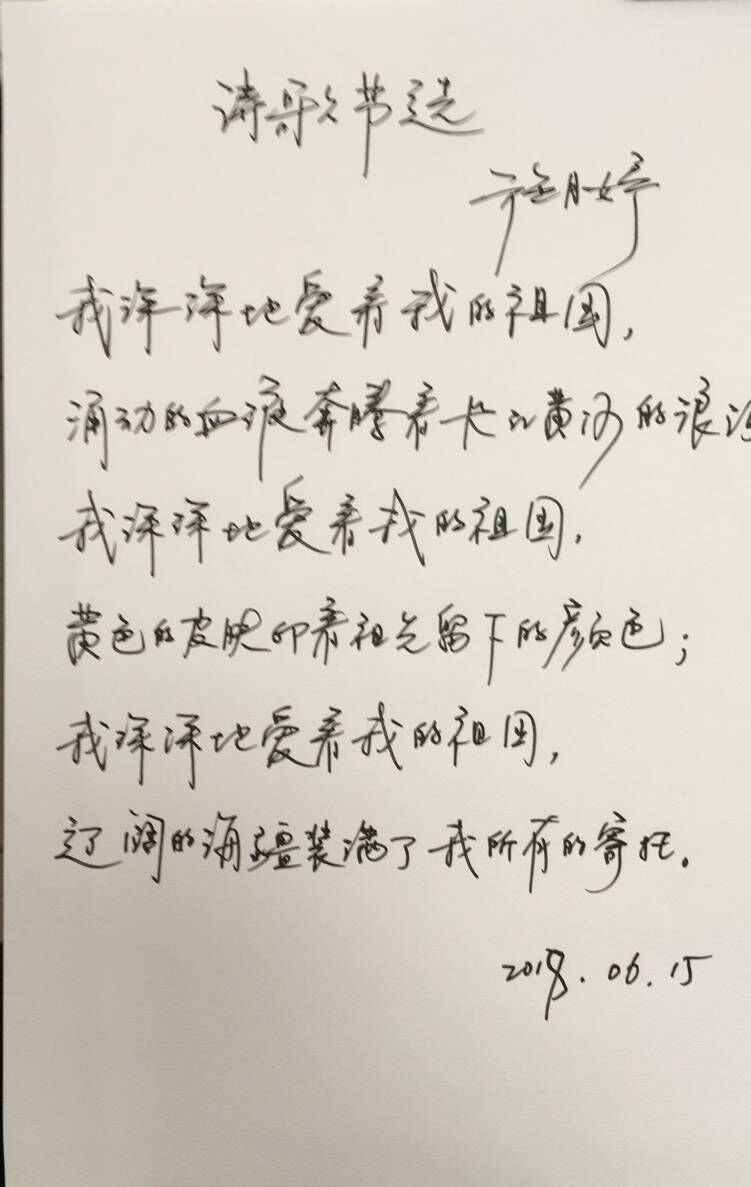 诗歌节选
我深深地爱着我的祖国，
涌动的血液奔腾着长江黄河的浪
我深深地爱着我的祖国，
黄色的皮肤印着祖先留下的颜色；
我深深地爱着我的祖国，
辽阔的海疆装满了我所有的寄托。
2018.06.15